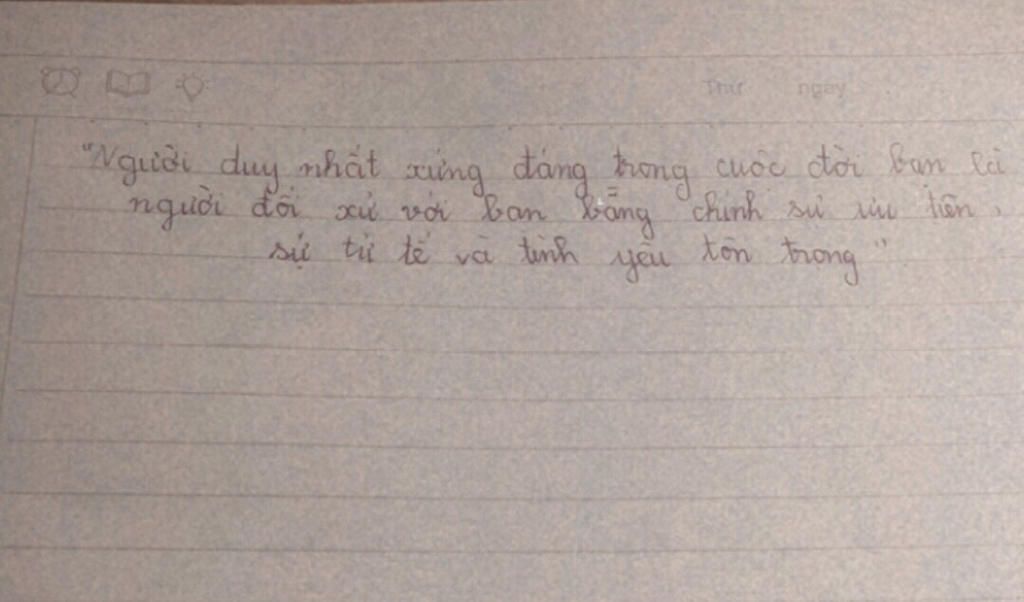 Thứ ngày
"Người duy nhất xứng đáng trong cuộc đời bạn là
người đối xử với bạn bằng chính sự ưu tiên,
sự tử tế và tình yêu tôn trọng"